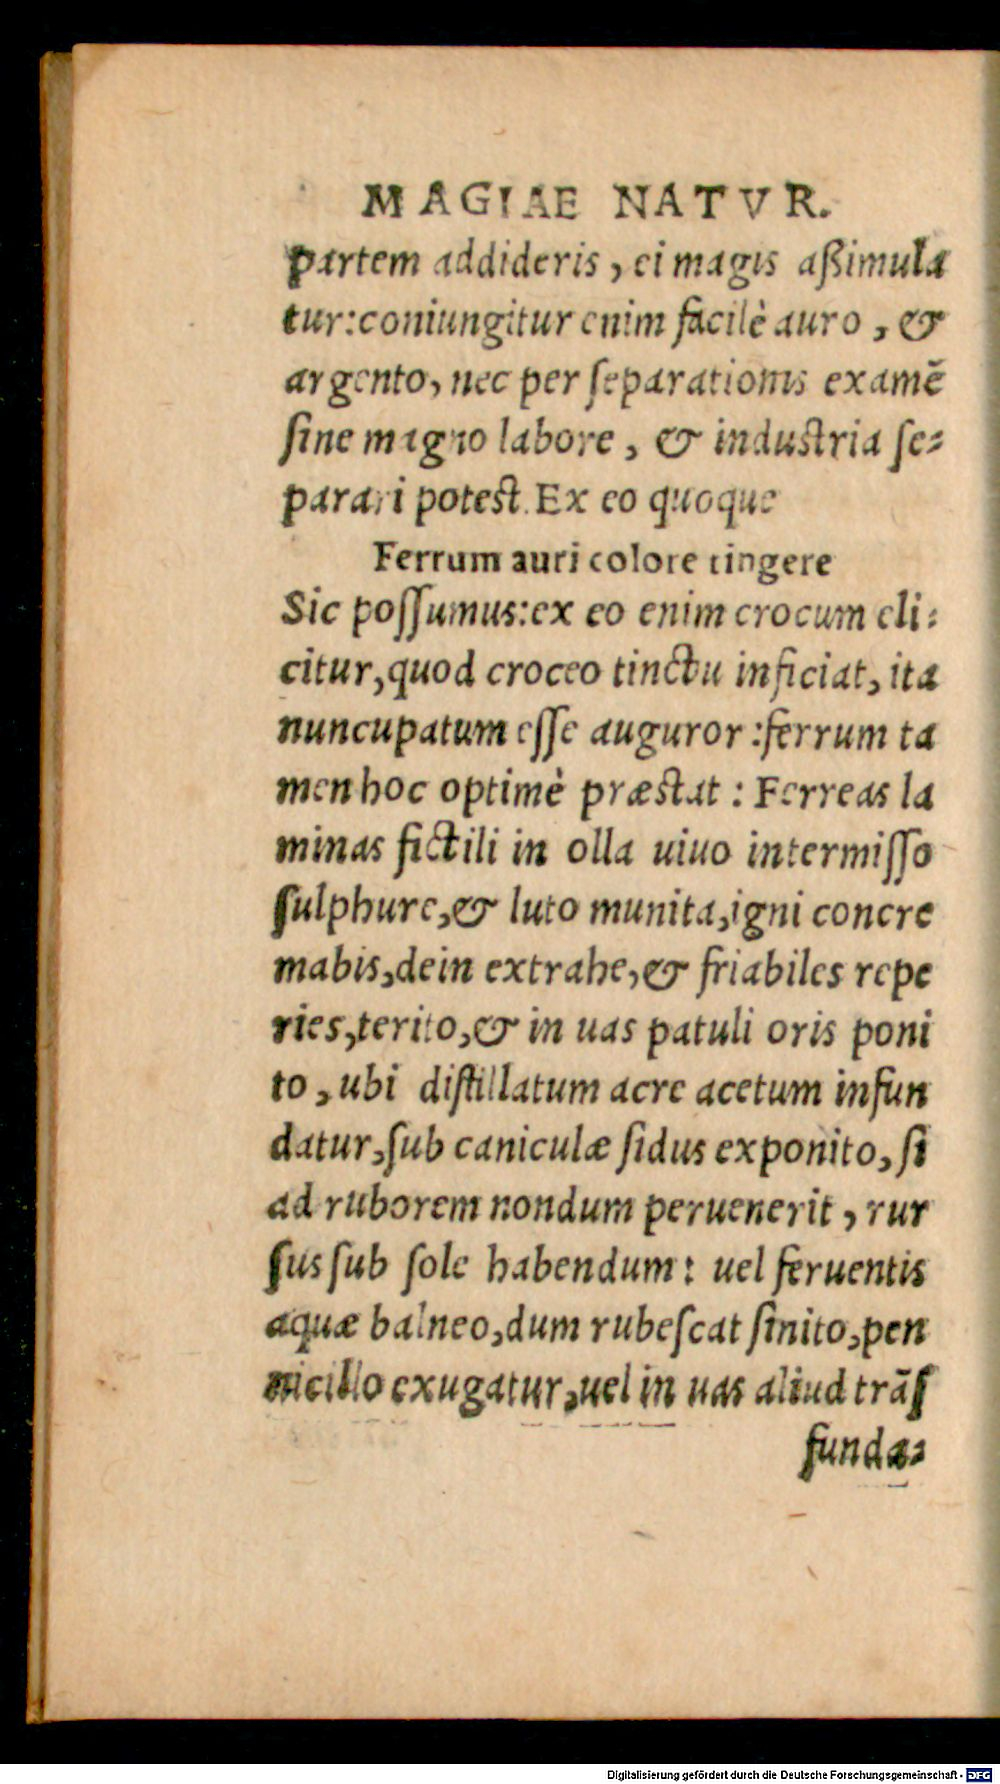 MAGIAE NATVR.
partem addideris, ei magis aßimula
tur:coniungitur enim facilè auro, &
argento, nec per ſeparationis examẽ
ſine magno labore, & induſtria ſe-
parari poteſt. Ex eo quoque
Ferrum auri colore tingere
Sic poſſumus:ex eo enim crocum eli-
citur,quod croceo tinctu inficiat, ita
nuncupatum eſſe auguror:ferrum ta
men hoc optimè præſtat: Ferreas la
minas fictili in olla uiuo intermiſſo
ſulphure,& luto munita,igni concre
mabis,dein extrahe,& friabiles repe
ries,terito,& in uas patuli oris poni
to, ubi diſtillatum acre acetum infun
datur,ſub caniculæ ſidus exponito, ſi
ad ruborem nondum peruenerit, rur
ſus ſub ſole habendum: uel feruentis
aquæ balneo,dum rubeſcat ſinito,pen
nicillo exugatur,uel in uas aliud trãſ
funda-
Digitalisierung gefördert durch die Deutsche Forschungsgemeinschaft - DFG